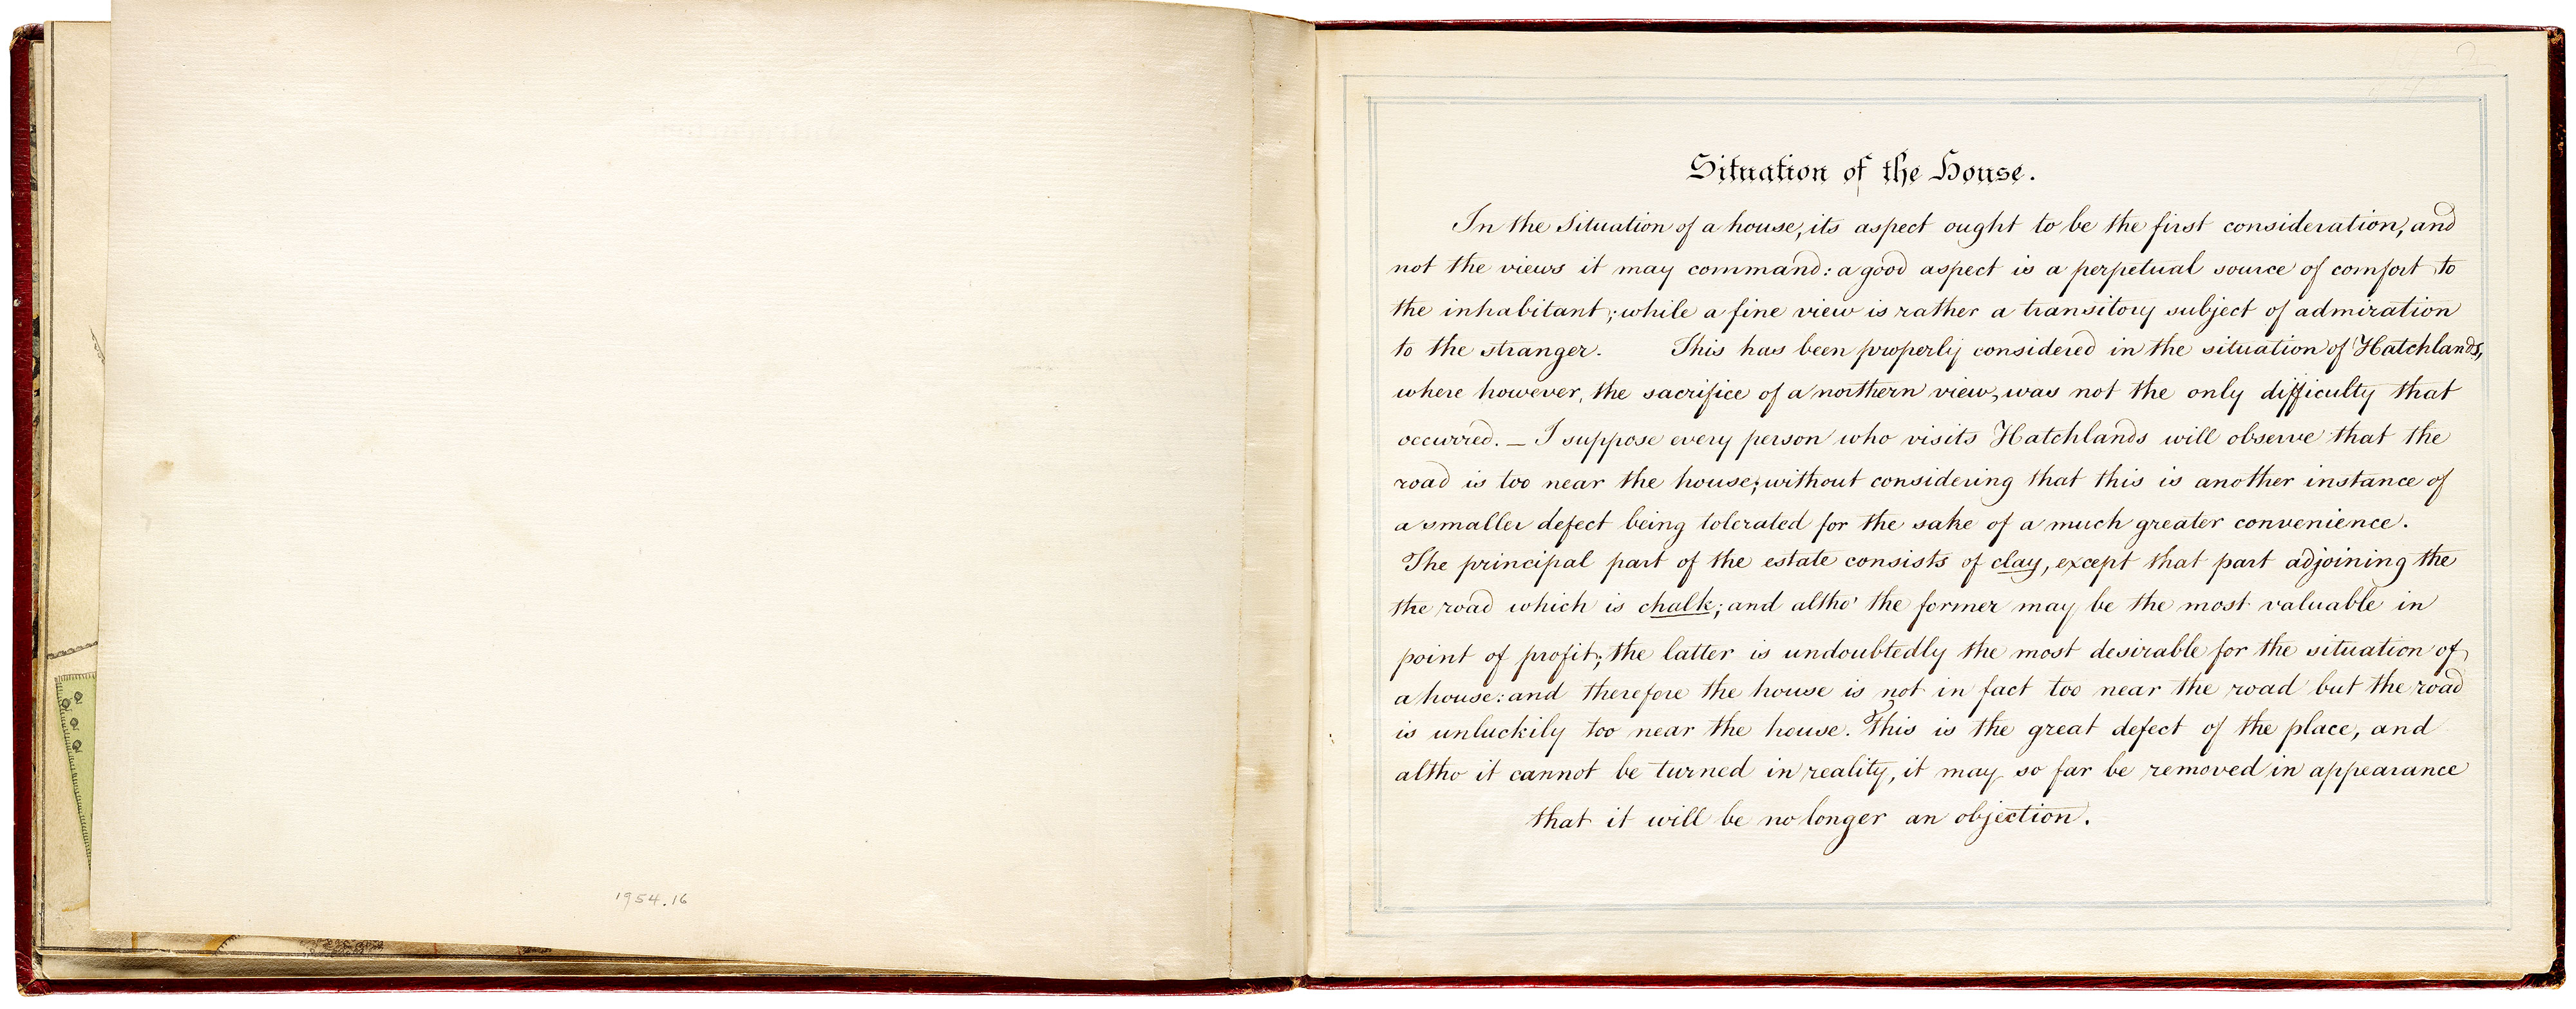 1954.16
2
Situation of the House.
In the Situation of a house, its aspect ought to be the first consideration, and
not the views it may command: a good aspect is a perpetual source of comfort to
the inhabitant; while a fine view is rather a transitory subject of admiration
to the stranger. This has been properly considered in the situation of Hatchlands,
where however, the sacrifice of a northern view, was not the only difficulty that
occurred. — I suppose every person who visits Hatchlands will observe that the
road is too near the house; without considering that this is another instance of
a smaller defect being tolerated for the sake of a much greater convenience.
The principal part of the estate consists of clay, except that part adjoining the
the road which is chalk; and altho' the former may be the most valuable in
point of profit; the latter is undoubtedly the most desirable for the situation of
a house: and therefore the house is not in fact too near the road but the road
is unluckily too near the house. This is the great defect of the place, and
altho it cannot be turned in reality, it may so far be removed in appearance
that it will be no longer an objection.